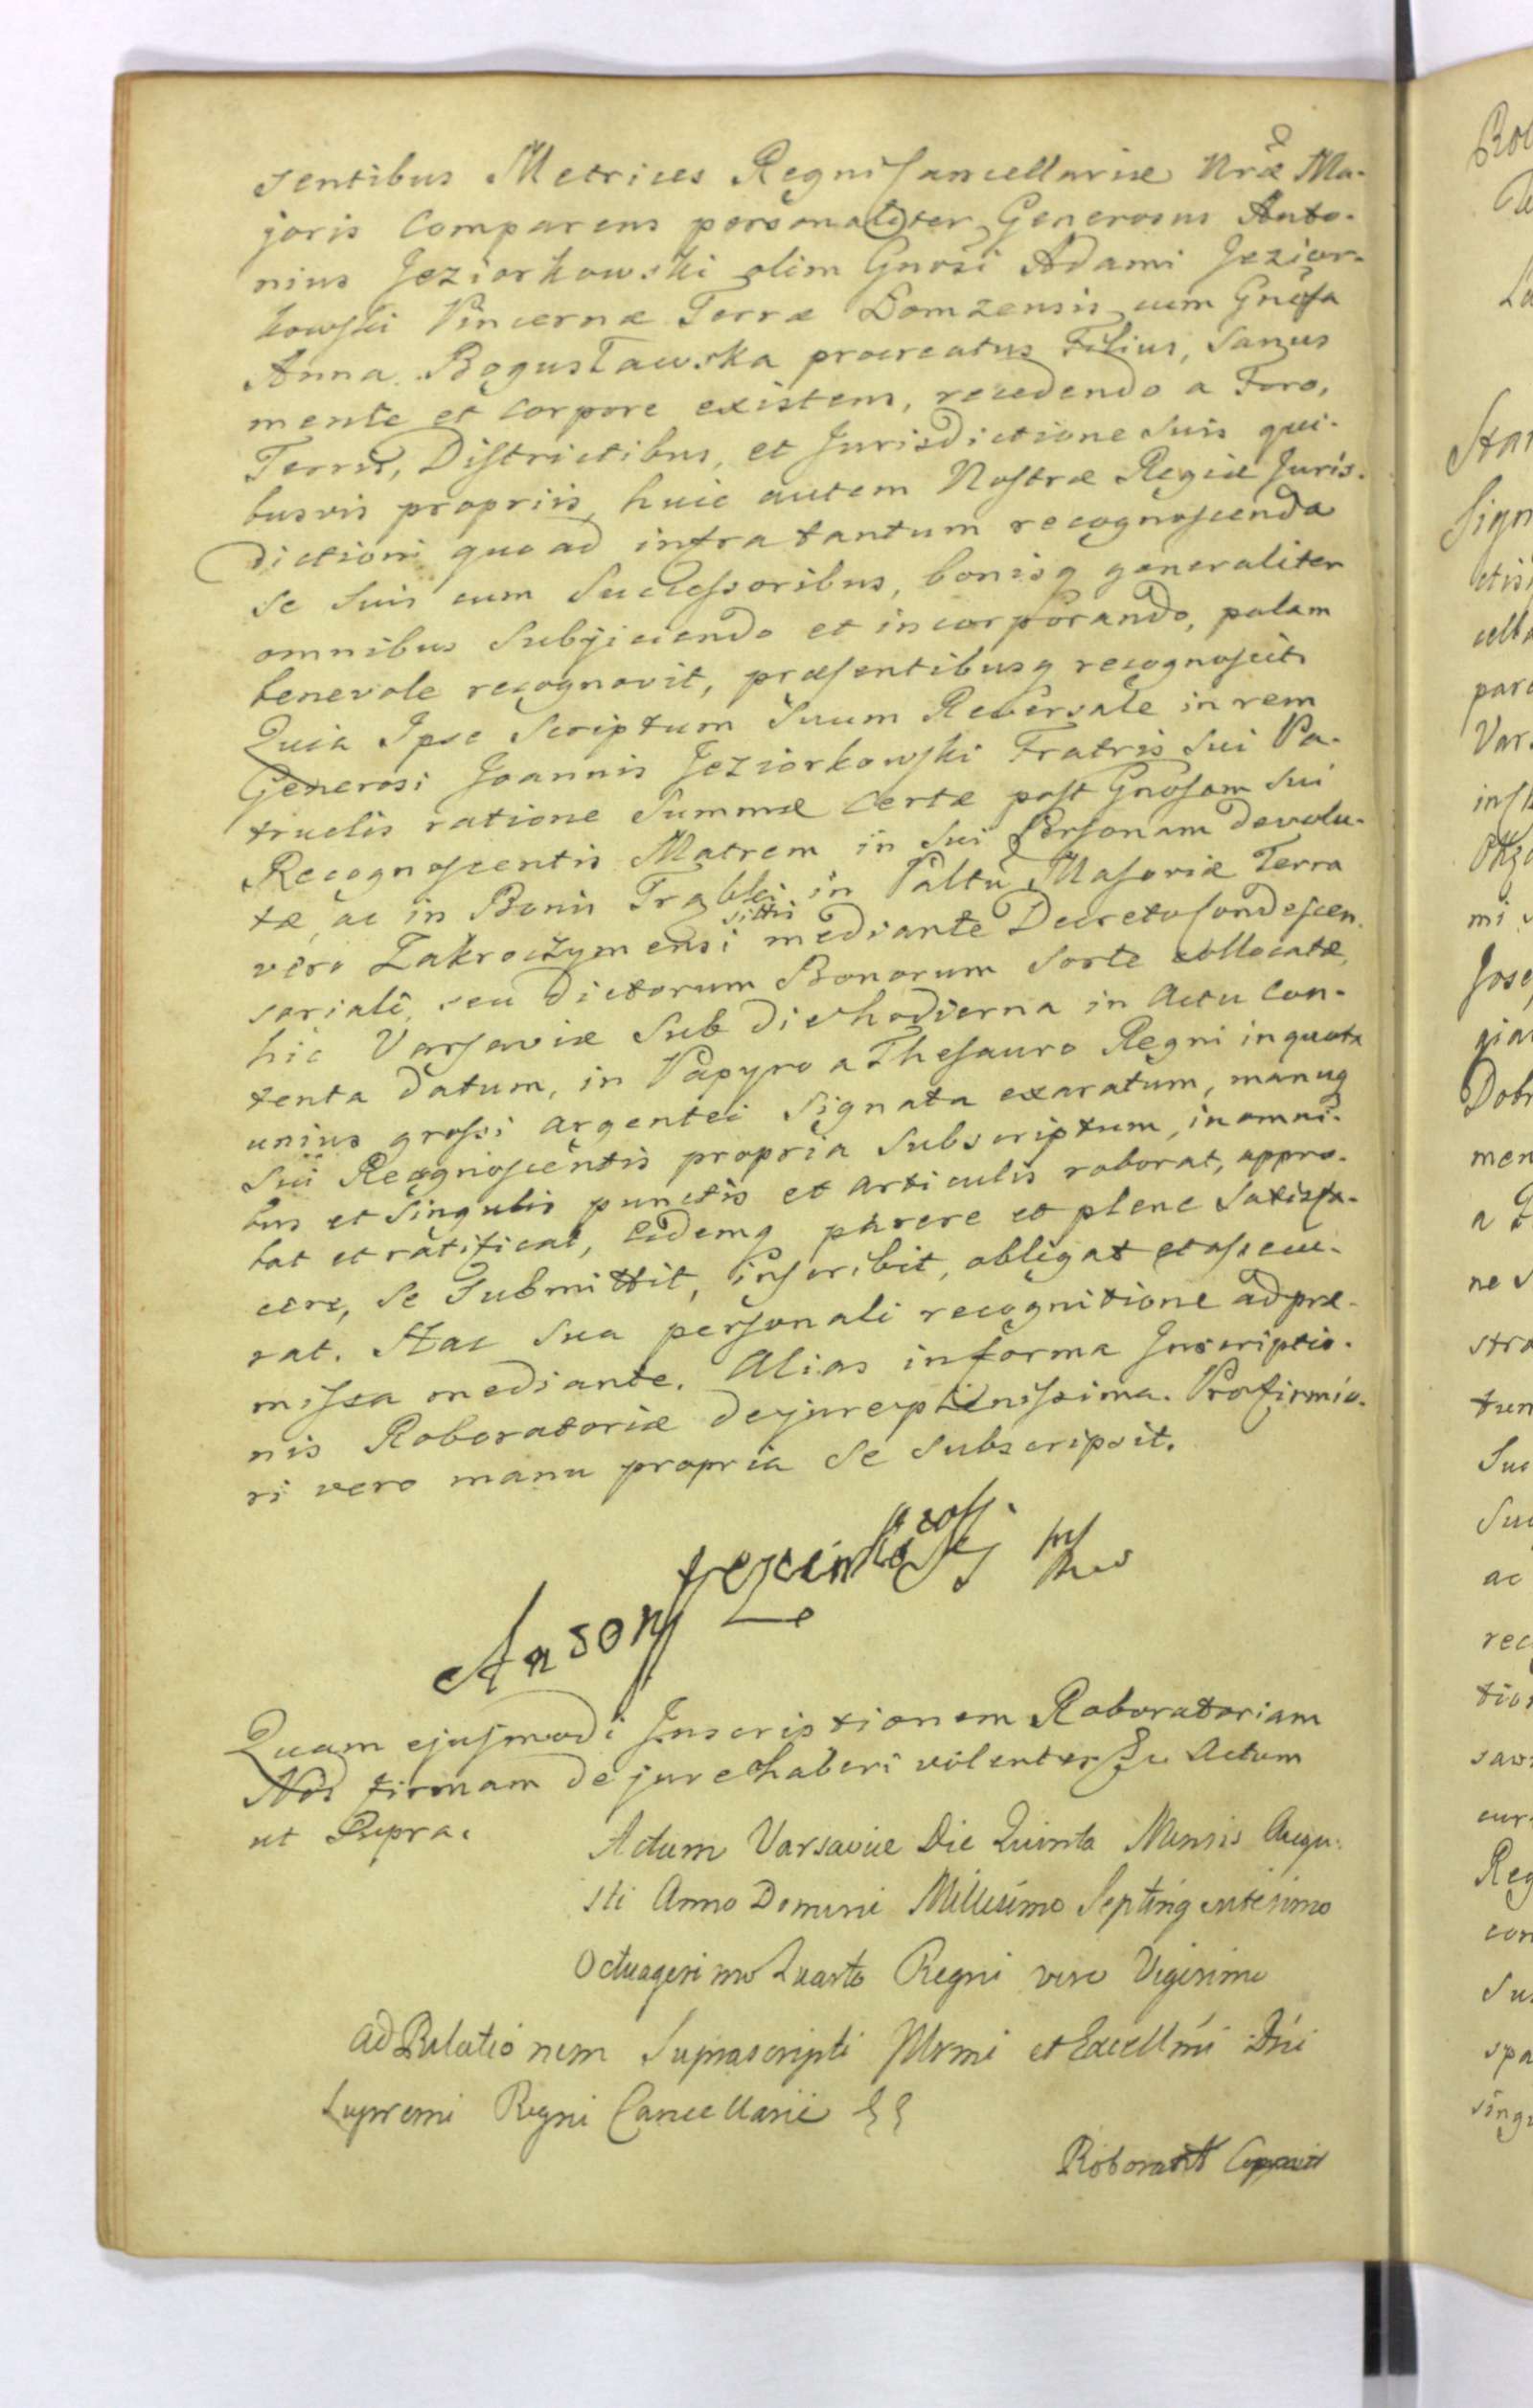 sentibus Metrices Regni Cancellariæ Nræ Ma-
joris Comparens personaliter Generosus Anto-
nius Jeziorkowski olim Gnosi Adami Jezior-
kowski Pincernæ Terræ Lomzensis cum Gnosa
Anna Bogusławska procreatus Filius, Sanus
mente et Corpore existens, recedendo a Foro,
Terris, Districtibus, et Jurisdictione Suis qui-
busvis propriis, huic autem Nostræ Regiæ Juris-
dictioni quo ad infra tantum recognoscenda
se Suis cum Successoribus, bonisq generaliter
omnibus Subjiciendo et incorporando, palam
benevole recognovit, præsentibusq recognoscit
Quia Ipse Scriptum Suum Reversale in rem
Generosi Joannis Jeziorkowski Fratris Sui Pa-
truelis ratione Summæ Certæ post Gnosam Sui
Recognoscentis Matrem in Sui Personam devolu-
tæ, ac in Bonis in Paltu Masoviæ Terra
vero Zakroczymensi sittis mediante Decreto Condescen-
soriali, seu dictorum Bonorum Sorte collocatæ,
hic Varsaviæ Sub die hodierna in Actu Con-
tenta datum, in Papyro a Thesauro Regni in quota
unius grossi argentei Signata exaratum, manuq
Sui Recognoscentis propria Subscriptum, in omni-
bus et Singulis punctis et articulis roborat, appro-
bat et ratificat, Eidemq parere et plene Satisfa-
cere, Se Submittit, inscribit, obligat et assecu-
rat. Hac Sua personali recognitione ad præ-
missa mediante. Alias in forma Inscriptio-
nis Roboratoriæ de jure plenissima. Pro firmio-
ri vero manu propria Se Subscripsit.
Antony Jeziorkowski
Quam ejusmodi Inscriptionem Roboratoriam
Nos firmam de jure haberi volentes Actum
ut Supra.
Actum Varsaviæ Die Quinta Mensis Augu-
sti Anno Domini Millesimo Septingentesimo
Octuagesimo Quarto Regni vero Vigesimo
ad Relationem Suprascripti Illrmi et Excellmi Dni
Supremi Regni Cancellarii